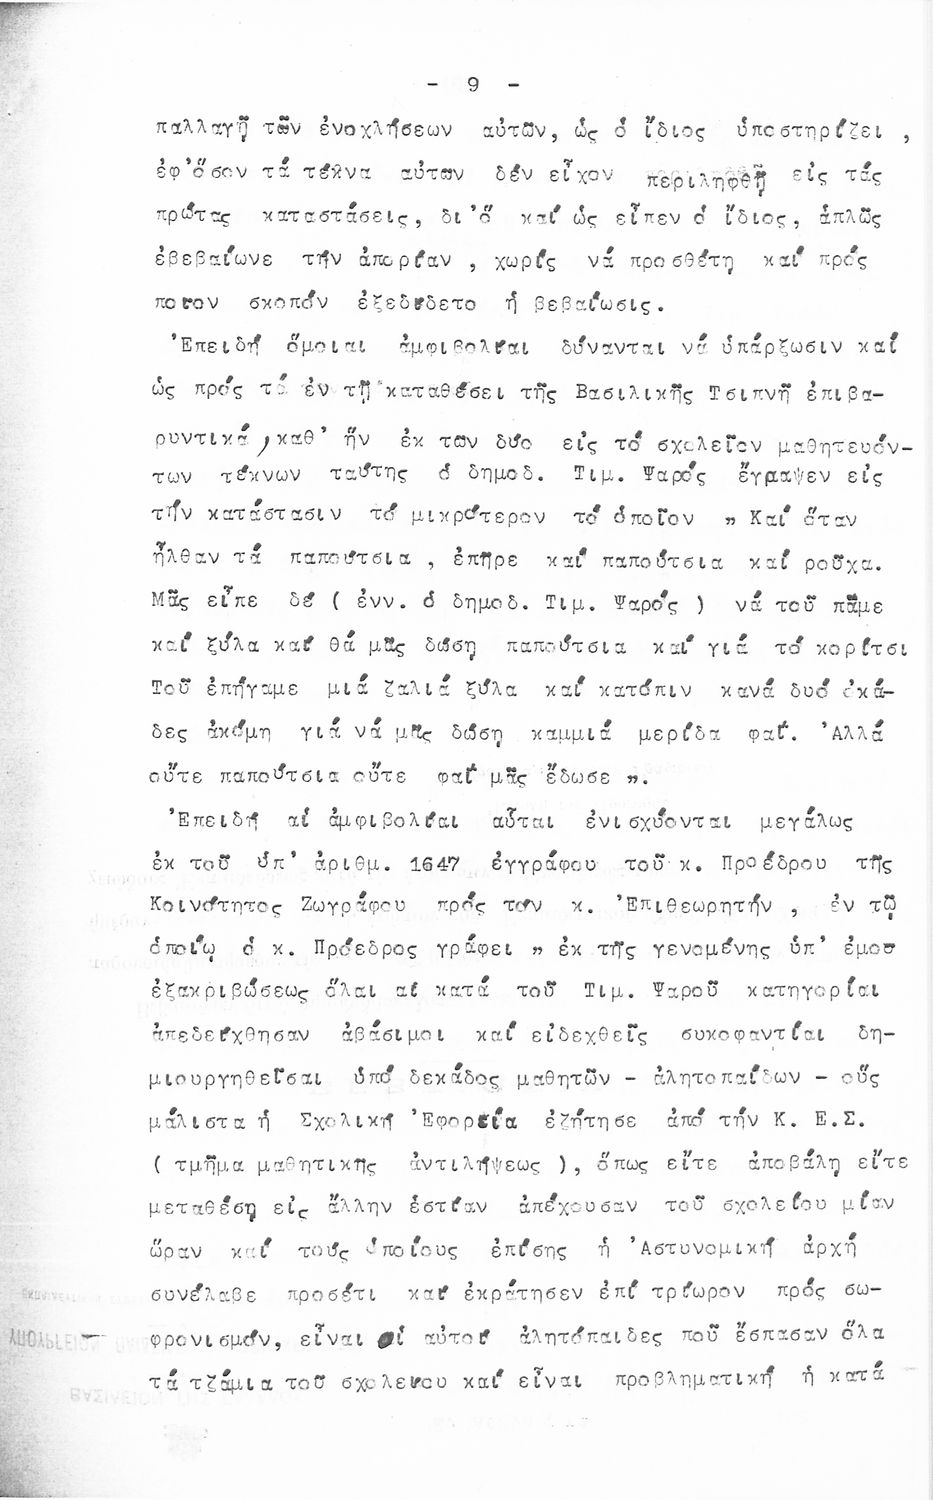 - 9 -
παλλαγῇ τῶν ἐνοχλήσεων αὐτῶν, ὡς ὁ ἴδιος ὑποστηρίζει ,
ἐφ'ὅσον τά τέκνα αὐτων δέν εἶχον περιληφθῆ εἰς τάς
πρώτας καταστάσεις, δι'ὅ καί ὡς εἶπεν ὁ ἴδιος, ἁπλῶς
ἐβεβαίωνε τήν ἀπορίαν , χωρίς νά προσθέτη καί πρός
ποιον σκοπόν ἐξεδίδετο ἡ βεβαίωσις.
Ἐπειδή ὅμοιαι ἀμφιβολίαι δύνανται νά ὑπάρξωσιν καί
ὡς πρός τά ἐν τῇ καταθέσει τῆς Βασιλικῆς Τσιπνῆ ἐπιβα-
ρυντικά, καθ' ἥν ἐκ των δύο εἰς τό σχολεῖον μαθητευόν-
των τέκνων ταύτης ὁ δημοδ. Τιμ. Ψαρός ἔγραψεν εἰς
τήν κατάστασιν τό μικρότερον τό ὁποῖον " Καί ὅταν
ἦλθαν τά παπούτσια , ἐπῆρε καί παπούτσια καί ροῦχα.
Μᾶς εἶπε δέ ( ἐνν. ὁ δημοδ. Τιμ. Ψαρός ) νά τοῦ πᾶμε
καί ξύλα καί θά μᾶς δώση παπούτσια καί γιά τό κορίτσι
Τοῦ ἐπήγαμε μιά ζαλιά ξύλα καί κατόπιν κανά δυό ὀκά-
δες ἀκόμη γιά νά μᾶς δώση καμμιά μερίδα φαΐ. Ἀλλά
οὔτε παπούτσια οὔτε φαΐ μᾶς ἔδωσε ".
Ἐπειδή αἱ ἀμφιβολίαι αὗται ἐνισχύονται μεγάλως
ἐκ τοῦ ὑπ' ἀριθμ. 1647 ἐγγράφου τοῦ κ. Προέδρου τῆς
Κοινότητος Ζωγράφου πρός τον κ. Ἐπιθεωρητήν , ἐν τῷ
ὁποίῳ ὁ κ. Πρόεδρος γράφει " ἐκ τῆς γενομένης ὑπ' ἐμοῦ
ἐξακριβώσεως ὅλαι αἱ κατά τοῦ Τιμ. Ψαροῦ κατηγορίαι
ἀπεδείχθησαν ἀβάσιμοι καί εἰδεχθεῖς συκοφαντίαι δη-
μιουργηθεῖσαι ὑπό δεκάδος μαθητῶν - ἀλητοπαίδων - οὕς
μάλιστα ἡ Σχολική Ἐφορεία ἐζήτησε ἀπό τήν Κ. Ε.Σ.
( τμῆμα μαθητικῆς ἀντιλήψεως ), ὅπως εἴτε ἀποβάλη εἴτε
μεταθέση εἰς ἄλλην ἑστίαν ἀπέχουσαν τοῦ σχολείου μίαν
ὥραν καί τούς ὁποίους ἐπίσης ἡ Ἀστυνομική ἀρχή
συνέλαβε προσέτι καί ἐκράτησεν ἐπί τρίωρον πρός σω-
φρονισμόν, εἶναι οἱ αὐτοί ἀλητόπαιδες πού ἔσπασαν ὅλα
τά τζάμια τοῦ σχολείου καί εἶναι προβληματική ἡ κατά